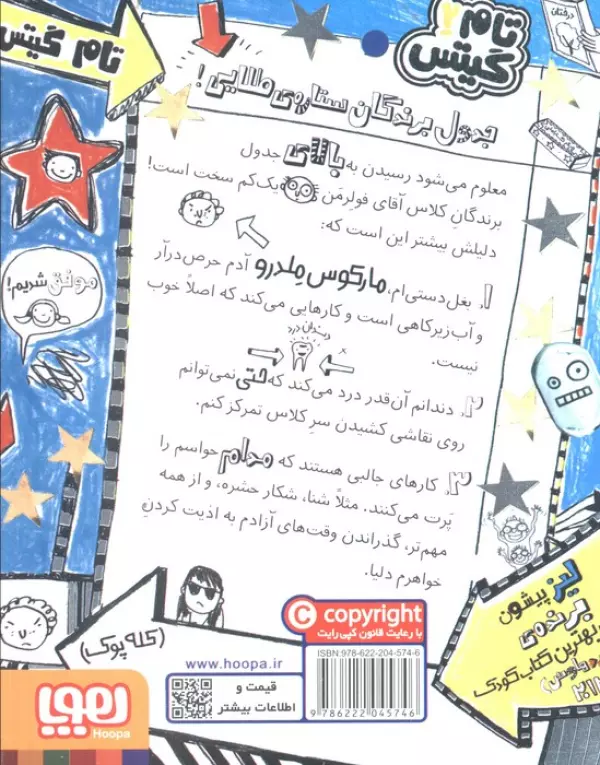 درختان
تام
گیتس
۲
تام گیتس
جدول برندگان ستاره‌ی طلایی!
معلوم می‌شود رسیدن به بالای جدول
برندگانِ کلاس آقای فولِرمَن یک‌کم سخت است!
دلیلش بیشتر این است که:
۱. بغل‌دستی‌ام، مارکوس مِلدرو آدم حرص‌درآر
و آب‌زیرکاهی است و کارهایی می‌کند که اصلاً خوب
نیست.
دندان درد
۲. دندانم آن‌قدر درد می‌کند که حتی نمی‌توانم
روی نقاشی کشیدن سرِ کلاس تمرکز کنم.
۳. کارهای جالبی هستند که مدام حواسم را
پَرت می‌کنند. مثلاً شنا، شکار حشره، و از همه
مهم‌تر، گذراندن وقت‌های آزادم به اذیت کردنِ
خواهرم دلیا.
موفق شدیم!
(کله پوک)
لیز پیشون
برنده‌ی
بهترین کتاب کودک
۲۰۱۲
copyright
با رعایت قانون کپی‌رایت
ISBN: 978-622-204-574-6
9 786222 045746
www.hoopa.ir
قیمت و
اطلاعات بیشتر
هوپا
Hoopa